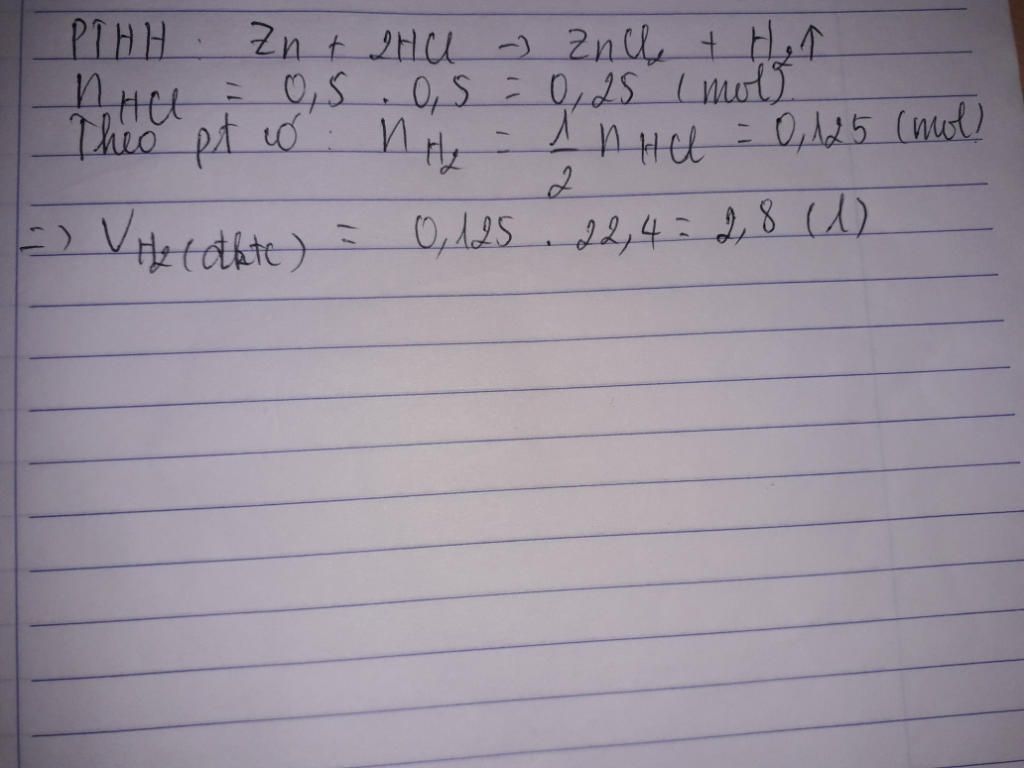 PTHH. Zn + 2HCl → ZnCl₂ + H₂↑
n_HCl = 0,5 . 0,5 = 0,25 (mol)
Theo pt có: n_H₂ = 1/2 n_HCl = 0,125 (mol)
=> V_H₂(đktc) = 0,125 . 22,4 = 2,8 (l)